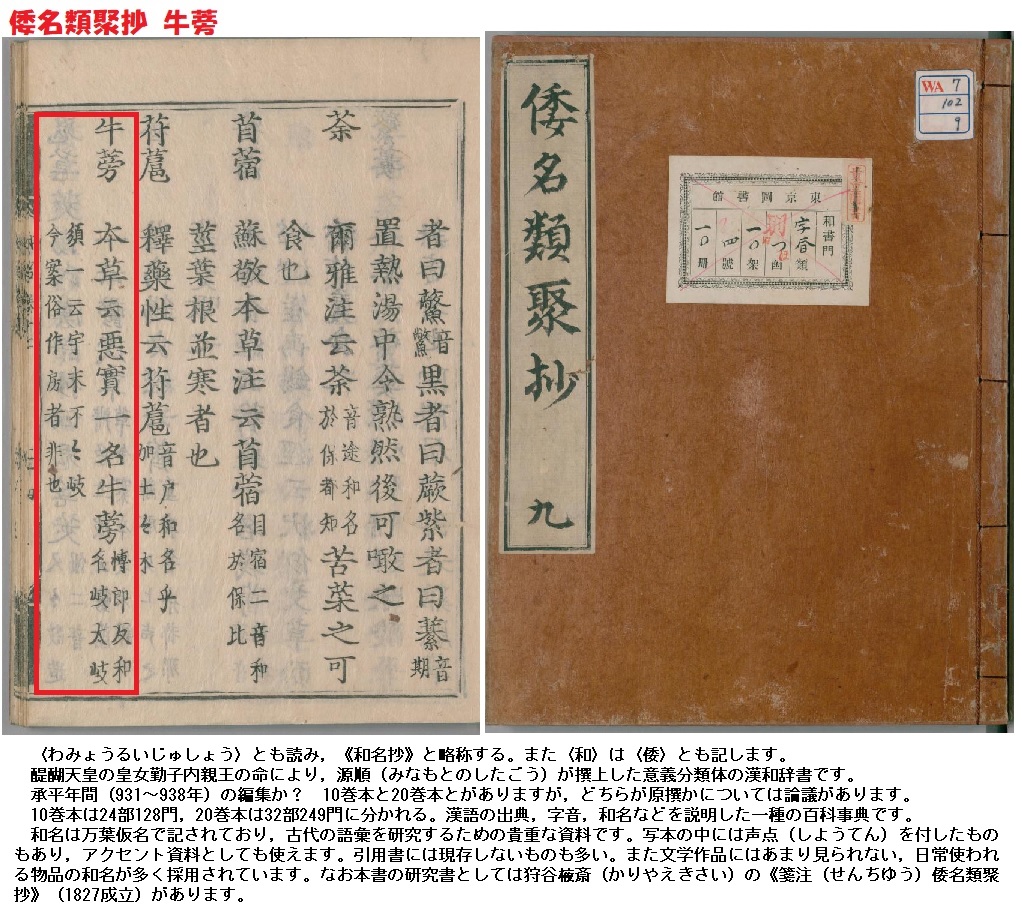 倭名類聚抄 牛蒡
者曰虌音鼈黒者曰蕨紫者曰藄音期
置熱湯中令熟然後可噉之
茶 爾雅注云茶音途和名於保都知苦菜之可
食也
苜蓿 蘇敬本草注云苜蓿目宿二音和名於保比
茎葉根並寒者也
苻蓲 釋藥性云苻蓲
牛蒡 本草云惡實一名牛蒡博郎反和名岐太岐
須一云宇末不々岐
今案俗作房者非也
倭名類聚抄 九
WA 7
102
9
東京圖書館
和書門
字書類
函
一〇架
四號
一〇冊
〈わみょうるいじゅしょう〉とも読み，《和名抄》と略称する。また〈和〉は〈倭〉とも記します。
醍醐天皇の皇女勤子内親王の命により，源順（みなもとのしたごう）が撰上した意義分類体の漢和辞書です。
承平年間（931～938年）の編集か？　10巻本と20巻本とがありますが，どちらが原撰かについては論議があります。
10巻本は24部128門，20巻本は32部249門に分かれる。漢語の出典，字音，和名などを説明した一種の百科事典です。
和名は万葉仮名で記されており，古代の語彙を研究するための貴重な資料です。写本の中には声点（しょうてん）を付したもの
もあり，アクセント資料としても使えます。引用書には現存しないものも多い。また文学作品にはあまり見られない，日常使われ
る物品の和名が多く採用されています。なお本書の研究書としては狩谷棭斎（かりやえきさい）の《箋注（せんちゆう）倭名類聚
抄》（1827成立）があります。